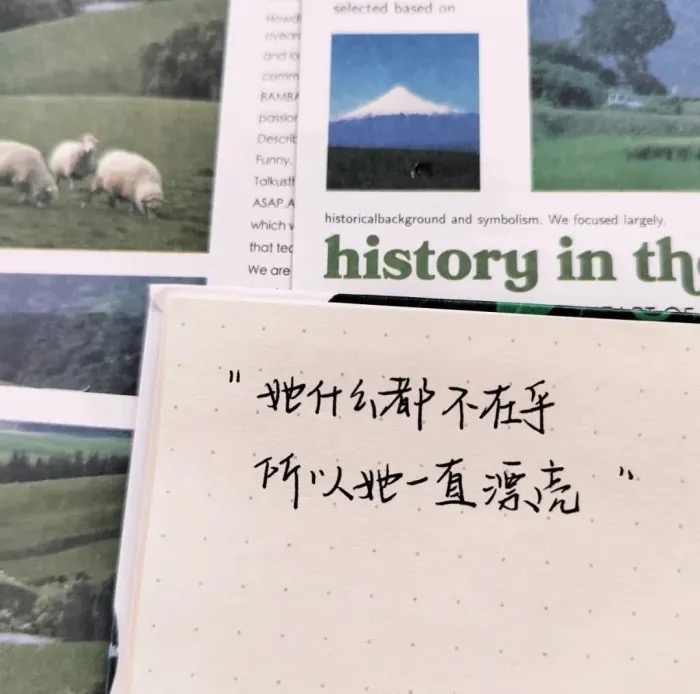 selected based on
Howd
and la
comm
RAMBA
passion
Describ
Funny.
Talkusth
ASAP.A
which v
that tec
We are
historicalbackground and symbolism. We focused largely.
history in th
"她什么都不在乎
所以她一直漂亮"